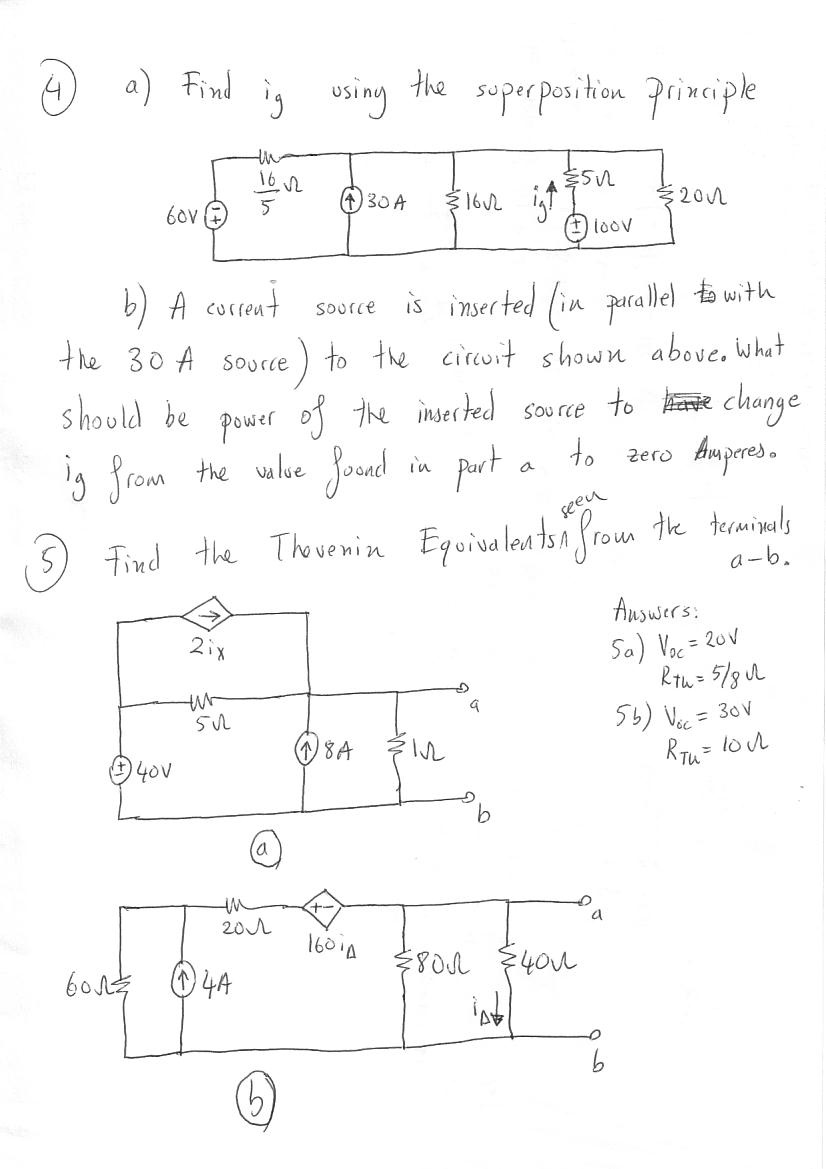 4 a) Find ig using the superposition principle
16/5 Ω
60V
30A
16Ω
ig
5Ω
100V
20Ω
b) A current source is inserted (in parallel with
the 30 A source) to the circuit shown above. What
should be power of the inserted source to change
ig from the value found in part a to zero Amperes.
5 Find the Thevenin Equivalents seen from the terminals
a-b.
Answers:
5a) Voc = 20V
RTh = 5/8 Ω
5b) Voc = 30V
RTh = 10 Ω
2ix
5Ω
40V
8A
1Ω
a
b
a
20Ω
160iΔ
60Ω
4A
80Ω
40Ω
iΔ
a
b
b